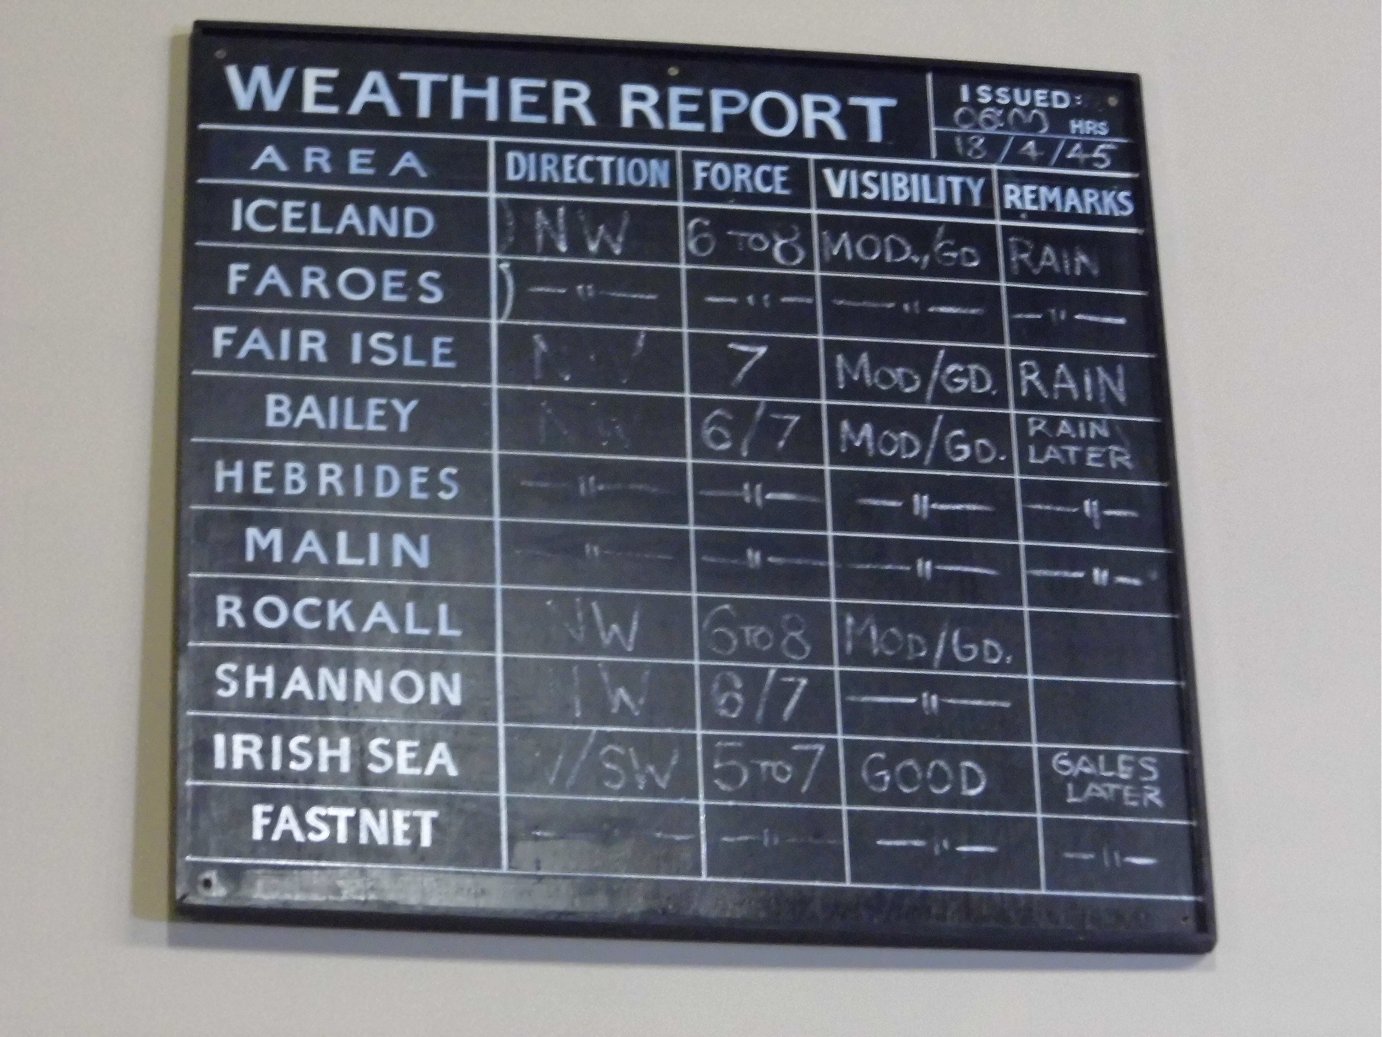 WEATHER REPORT
ISSUED:
0600 HRS
18/4/45
AREA DIRECTION FORCE VISIBILITY REMARKS
ICELAND NW 6 TO 8 MOD./GD RAIN
FAROES —"— —"— —"— —"—
FAIR ISLE NW 7 MOD/GD. RAIN
BAILEY NW 6/7 MOD/GD. RAIN LATER
HEBRIDES —"— —"— —"— —"—
MALIN —"— —"— —"— —"—
ROCKALL NW 6 TO 8 MOD/GD.
SHANNON W 6/7 —"—
IRISH SEA /SW 5 TO 7 GOOD GALES LATER
FASTNET —"— —"— —"— —"—